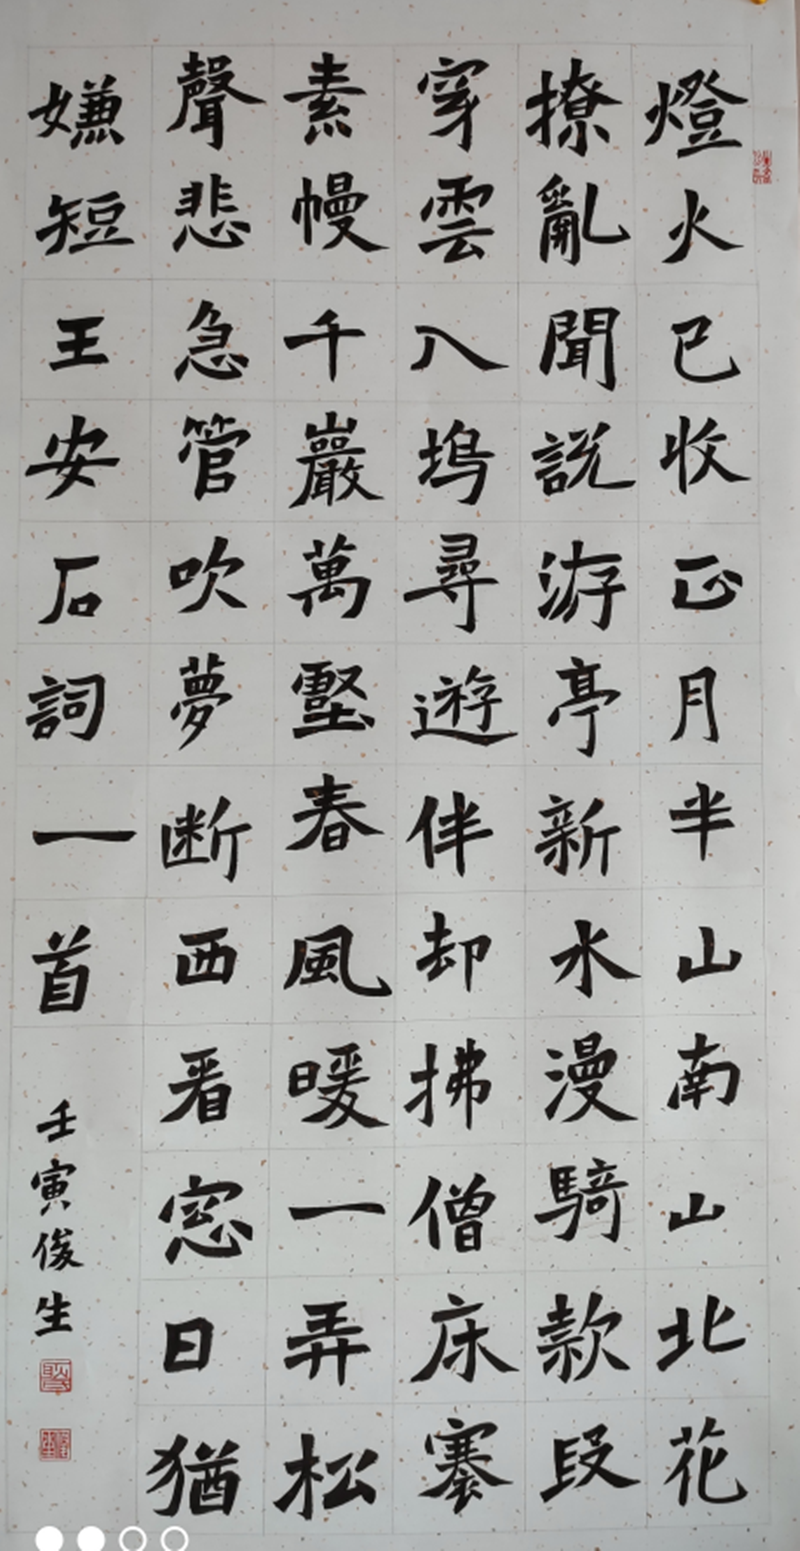 燈火已收正月半山南山北花
撩亂聞說游亭新水漫騎款段
穿雲入塢尋遊伴却拂僧床褰
素幔千巖萬壑春風暖一弄松
聲悲急管吹夢断西看窓日猶
嫌短王安石詞一首
壬寅俊生